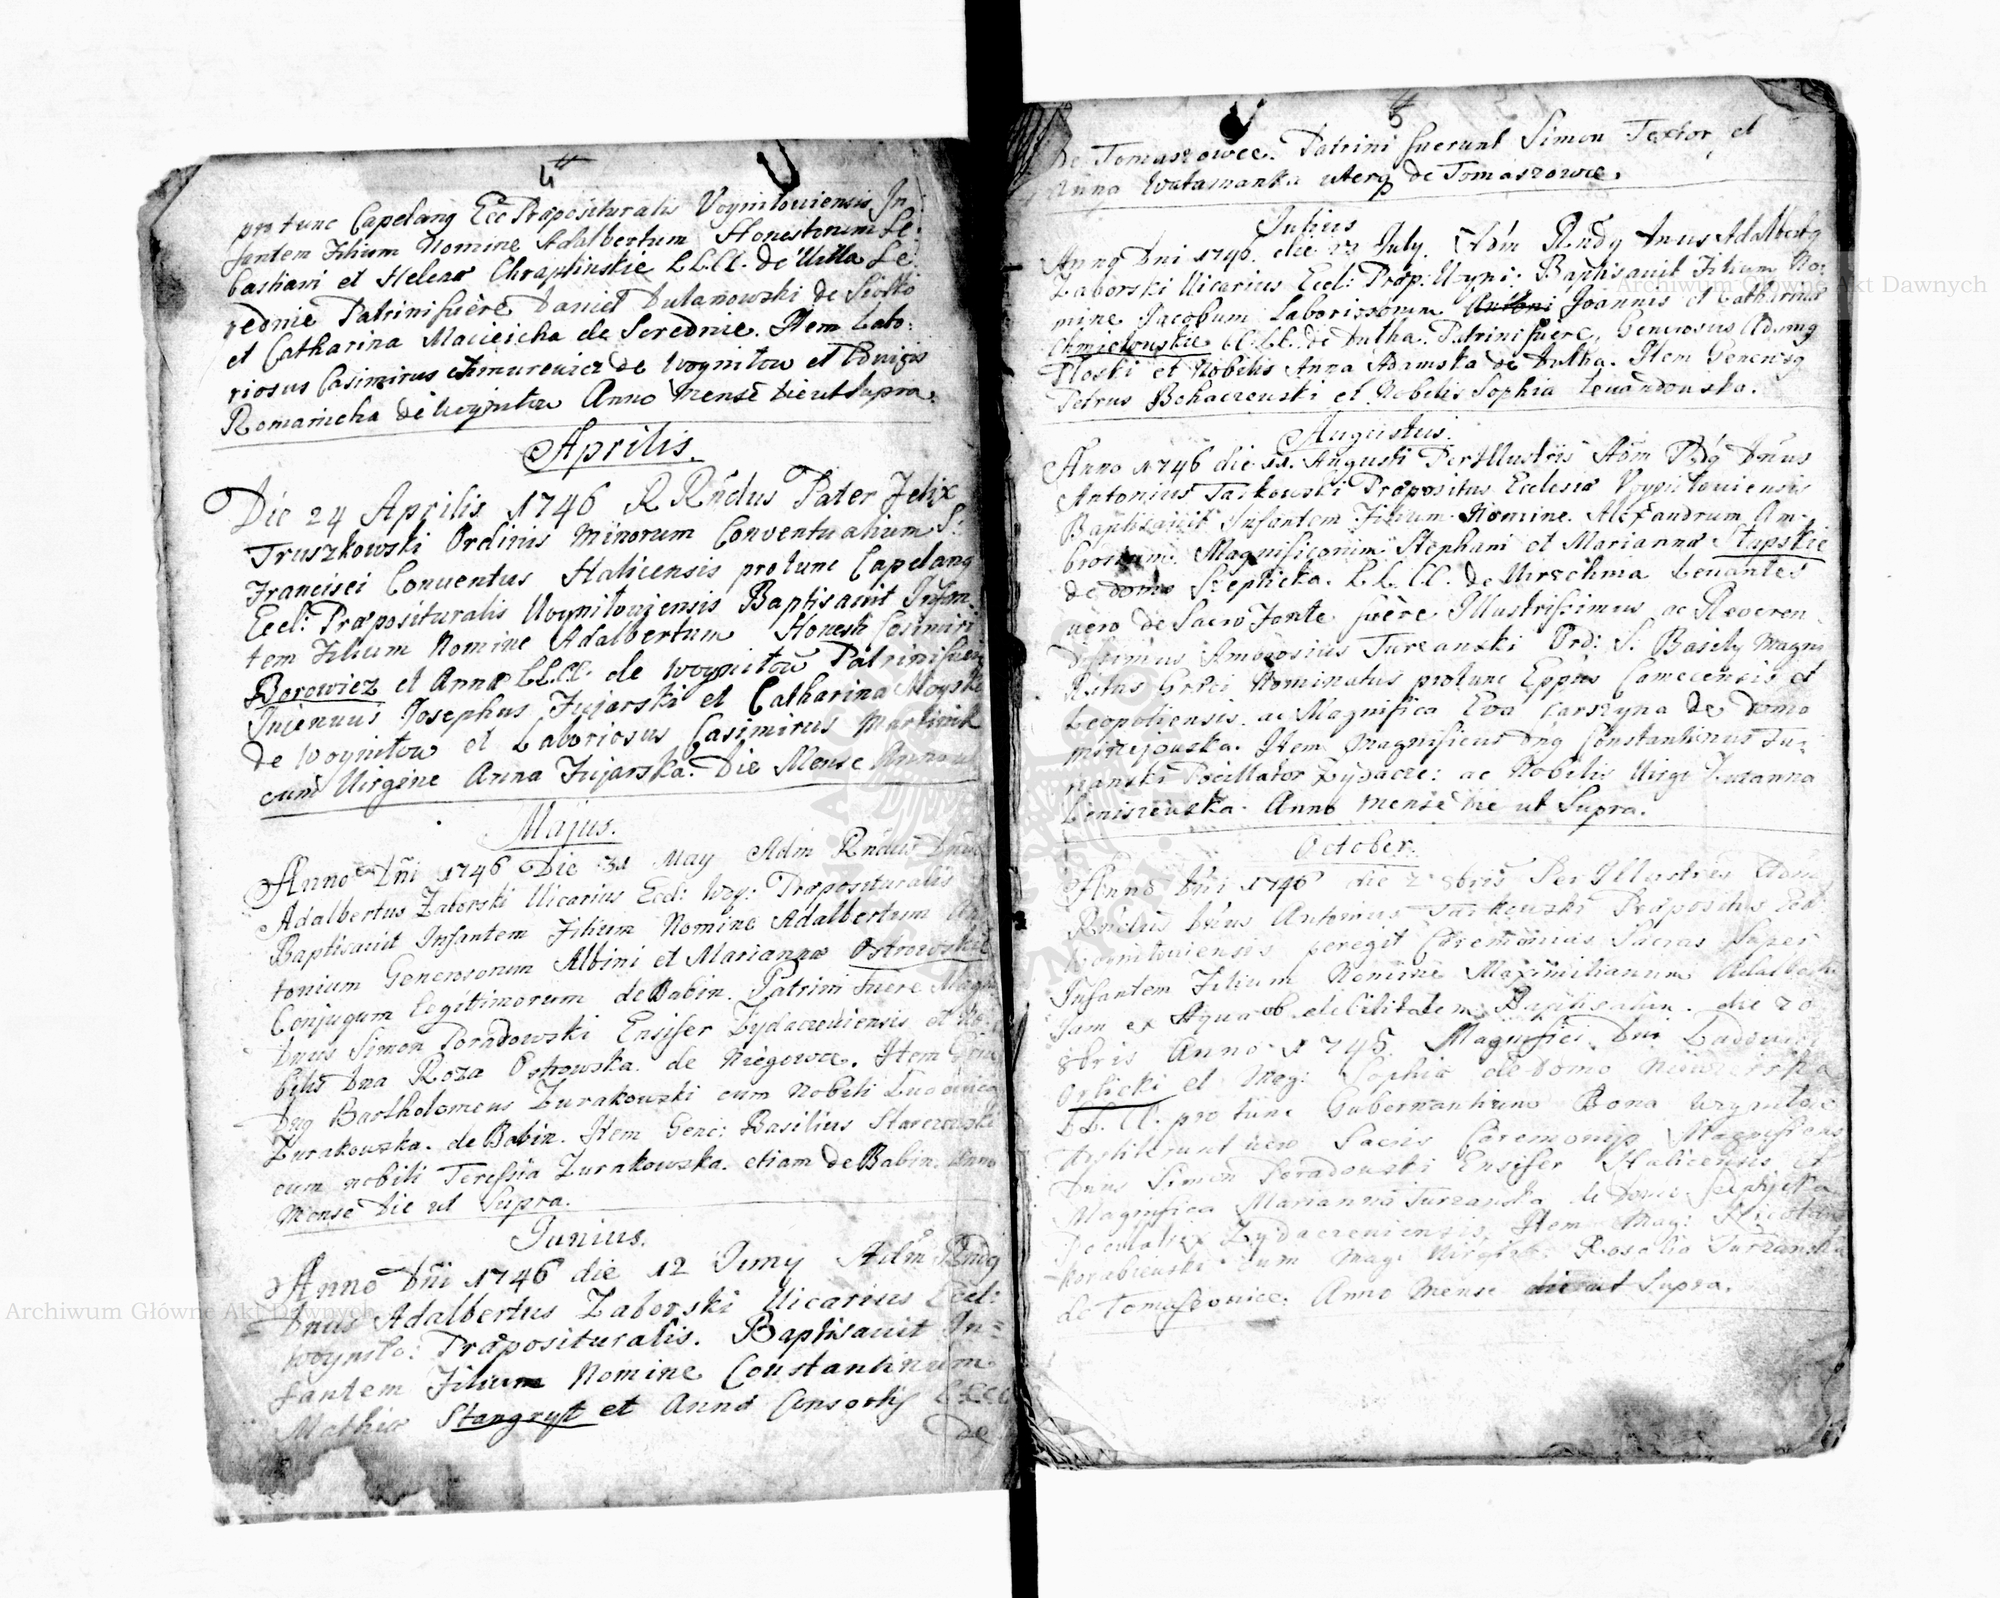 4
pro tunc Capelanq Ecc Præposituralis Voyniloviensis In
fantem Filium Nomine Adalbertum Honestorum Se:
bastiani et Helenæ Chraplinskie LLCC. de Villa Se
rednie Patrini fuere Daniel Dulanowski de Siolko
et Catharina Macieicha de Serednie. Item Labo:
riosus Casimirus de Woynilow et
Romanicha de Woynilow Anno Mense Die ut Supra.
Aprilis.
Die 24 Aprilis 1746 R Rndus Pater Felix
Truszkowski Ordinis Minorum Conventualium S:
Francisci Conventus Haliciensis pro tunc Capelanq
Eccl: Præposituralis Voyniloviensis Baptisavit Infan:
tem Filium Nomine Adalbertum Honesti Casimiri
Borowicz et Annæ LLCC. de Woynilow Patrini fuere
Injenuus Josephus Fujarski et Catharina Moyska
de Woynilow et Laboriosus Casimirus Martinik
cum Virgine Anna Fujarska. Die Mense Anno ut
Majus.
Anno Dni 1746 Die 31 May Adm Rndus Dnus
Adalbertus Zaborski Vicarius Eccl: Woy: Præposituralis
Baptisavit Infantem Filium Nomine Adalbertum An
tonium Generosorum Albini et Mariannæ Ostrowskie
Conjugum Legitimorum de Babin. Patrini fuere Magn
Dnus Simon Poradowski Ensifer Zydaczeviensis et No:
bilis Dna Roza Ostrowska de Niegowce. Item Gene
Dnq Bartholomeus Zurakowski cum Nobili Ludovica
Zurakowska. de Babin. Item Gene: Basilius Starczewski
cum nobili Teressia Zurakowska. etiam de Babin. Anno
Mense Die ut Supra.
Junius.
Anno Dni 1746 die 12 Juny Adm Rndq
Dnus Adalbertus Zaborski Vicarius Eccl:
Woynilo: Præposituralis. Baptisavit In=
fantem Filium Nomine Constantinum
Mathiæ Stangryt et Annæ Consortis LLCC
De
5
de Tomaszowce. Patrini fuerunt Simon Textor et
Anna Watamanka uterq de Tomaszowce.
Julius
Anno Dni 1746. die July. Adm Rndq Dnus Adalbertq
Zaborski Vicarius Eccl: Præp: Woyni: Baptisavit Filium No:
mine Jacobum Laboriosorum Joannis et Catharinæ
Chmielowskie CC.LL. de Dutha. Patrini fuere. Generosus Adamq
Ploski et Nobilis Anna Adamska de Dutha. Item Generosq
Petrus Bohaczewski et Nobilis Sophia Lewandowska.
Augustus.
Anno 1746 die 11. Augusti Per Illustris Adm Rndq Dnus
Antonius Tarkowski Præpositus Ecclesiæ Voyniloviensis
Baptisavit Infantem Filium Nomine. Alexandrum Am=
brosium. Magnificorum Stephani et Mariannæ Slupskie
de domo Stęplicka. LLCC. de Wirzchnia Levantes
vero de Sacro Fonte fuere Illustrissimus ac Reveren
dissimus Ambrosius Turzanski Ord: S. Basily Magni
Ritus Græci Nominatus pro tunc Eppus Camecensis et
Leopoliensis. ac Magnifica Eva Carszyna de Domo
Mirzejowska. Item Magnificus Dnq Constantinus Tu=
rzanski Pocillator Zydacze: ac Nobilis Virgo Zuzanna
Leniszewska. Anno Mense Die ut Supra.
October.
Anno Dni 1746 die 2 8bris Per Illustris Adm
Rndus Dnus Antonius Tarkowski Præpositus Eccl
Woyniloviensis peregit Ceremonias Sacras super
Infantem Filium Nomine Maximilianum Adalbertu
Jam ex Aqua ob debilitatem Baptisatum. die 20
8bris Anno 1745. Magnifici Dni Ludovici
Orlicki et Mag: Sophiæ de Domo
LL.CC. pro tunc Gubernantium Bona Woynilow
Astiterunt vero Sacris Ceremonijs Magnificus
Dnus Simon Poradowski Ensifer Halicensis et
Magnifica Marianna Turzanska de Domo Stęplicka
Zydaczeviensis. Item Mag:
Korabiewski cum Mag: Virgine. Rosalia Turzanska
de Tomaszowice. Anno Mense die ut Supra.
Archiwum Główne Akt Dawnych
Archiwum Główne Akt Dawnych